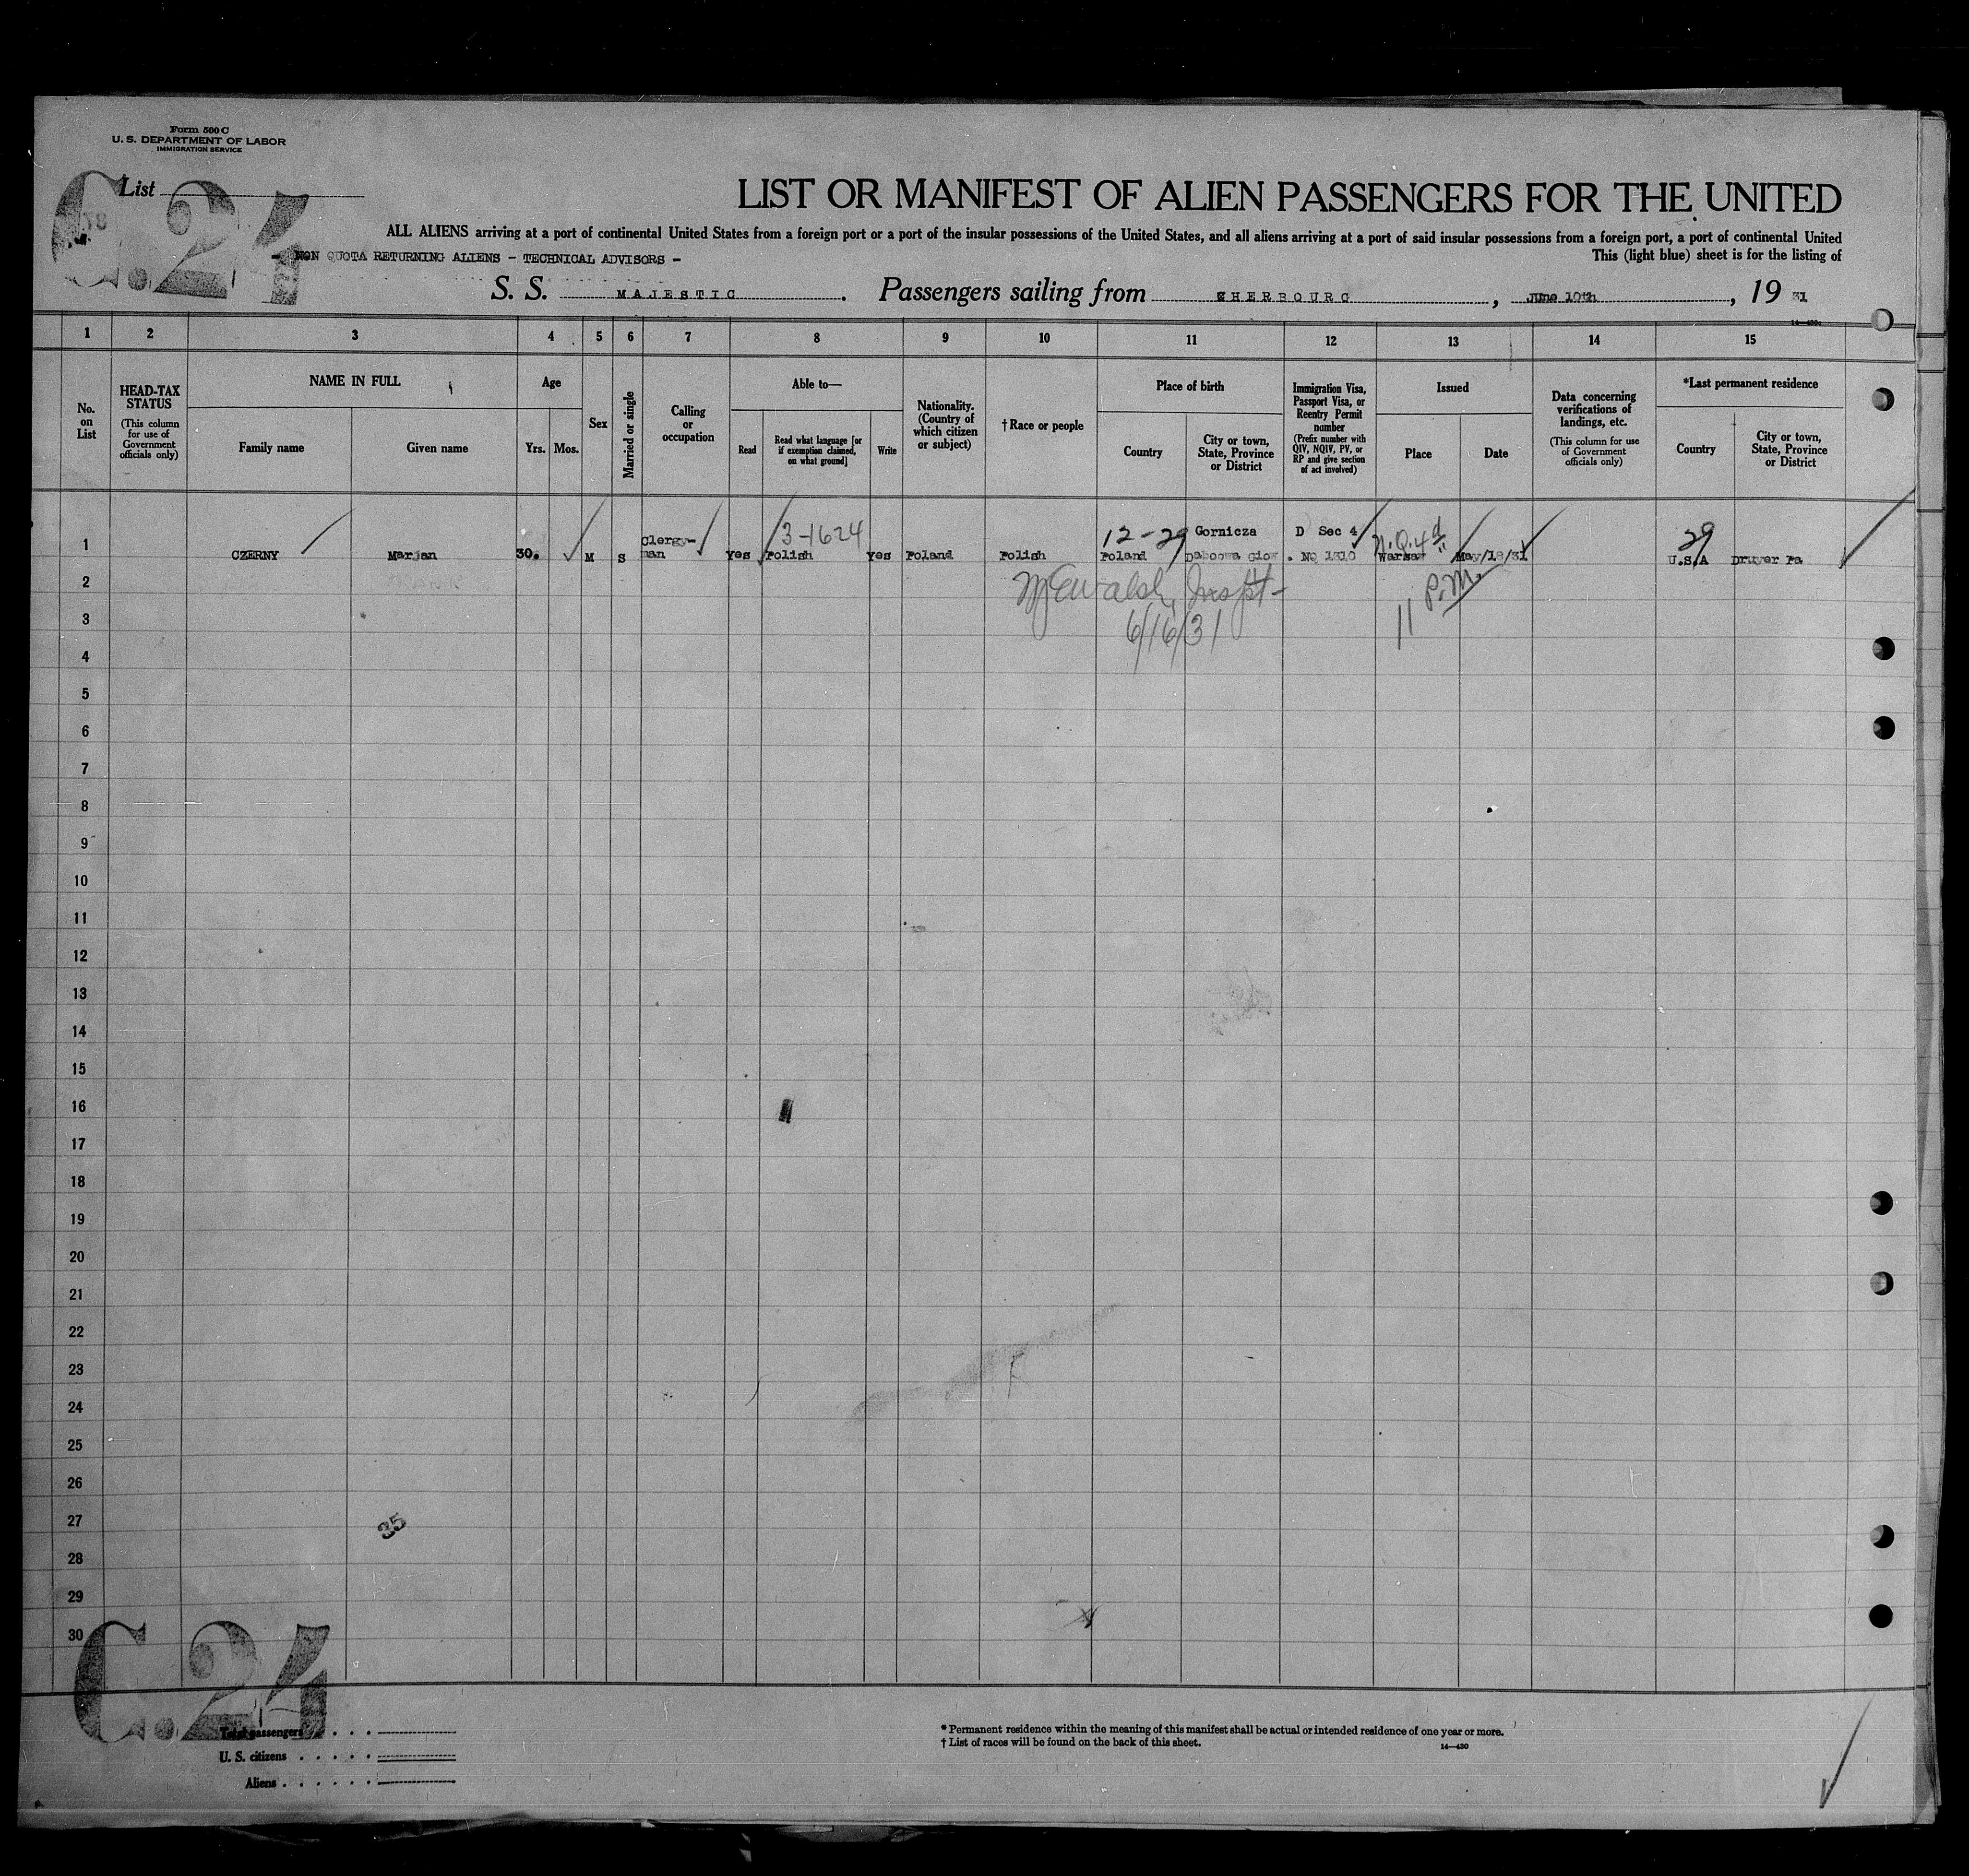 Form 500 C
U. S. DEPARTMENT OF LABOR
IMMIGRATION SERVICE
List
C.24
LIST OR MANIFEST OF ALIEN PASSENGERS FOR THE UNITED
ALL ALIENS arriving at a port of continental United States from a foreign port or a port of the insular possessions of the United States, and all aliens arriving at a port of said insular possessions from a foreign port, a port of continental United
- NON QUOTA RETURNING ALIENS - TECHNICAL ADVISORS -
This (light blue) sheet is for the listing of
S. S. MAJESTIC. Passengers sailing from CHERBOURG, June 10th, 19 31
1 2 3 4 5 6 7 8 9 10 11 12 13 14 15
No. on List
HEAD-TAX STATUS
(This column for use of Government officials only)
NAME IN FULL
Family name
Given name
Age
Yrs. Mos.
Sex
Married or single
Calling or occupation
Able to—
Read
Read what language [or if exemption claimed, on what ground]
Write
Nationality. (Country of which citizen or subject)
† Race or people
Place of birth
Country
City or town, State, Province or District
Immigration Visa, Passport Visa, or Reentry Permit number
(Prefix number with QIV, NQIV, PV, or RP and give section of act involved)
Issued
Place
Date
Data concerning verifications of landings, etc.
(This column for use of Government officials only)
*Last permanent residence
Country
City or town, State, Province or District
3-1624 12-29 Gornicza D Sec 4 N.Q.4d 29
1 CZERNY Marjan 30. M S Clergy-man Yes Polish Yes Poland Polish Poland Daboowa Giow . NQ 1310 Warsaw May/18/31 U.S.A Druyer Pa
2
Inspt-
11 P.M.
3
6/16/31
4
5
6
7
8
9
10
11
12
13
14
15
16
17
18
19
20
21
22
23
24
25
26
27
35
28
29
30
C.24
Total passengers
U. S. citizens
Aliens
* Permanent residence within the meaning of this manifest shall be actual or intended residence of one year or more.
† List of races will be found on the back of this sheet.
14—430